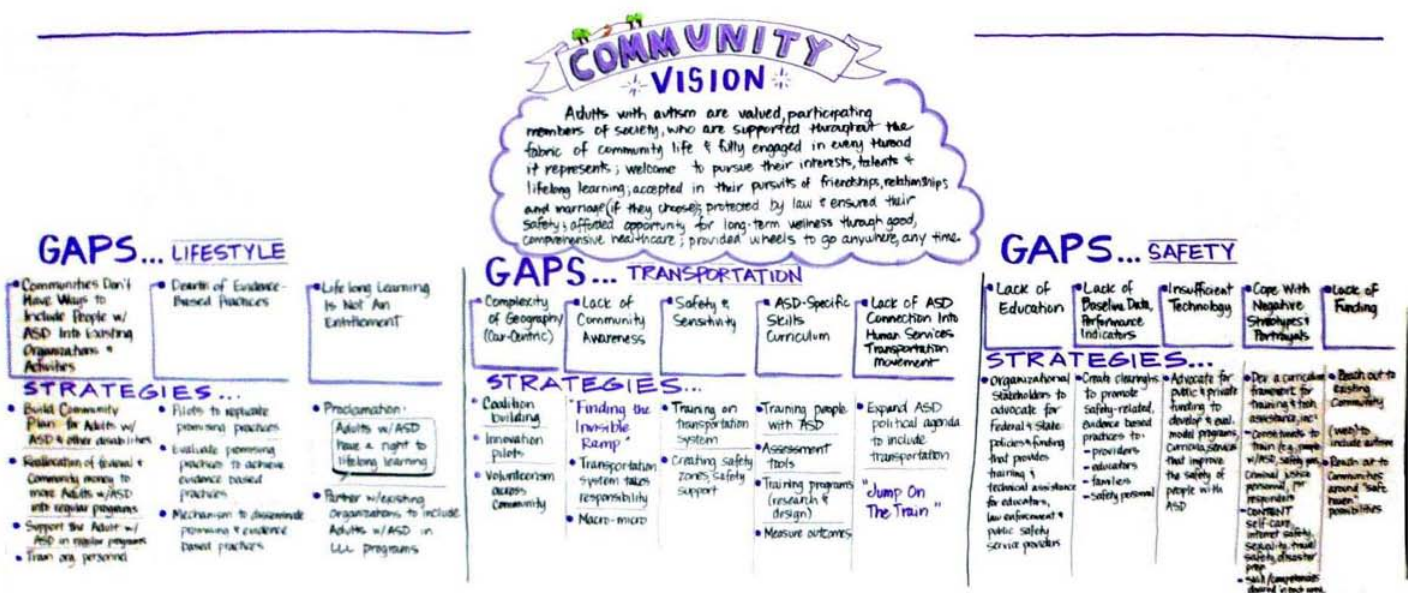 COMMUNITY
VISION
Adults with autism are valued, participating
members of society, who are supported throughout the
fabric of community life & fully engaged in every thread
it represents; welcome to pursue their interests, talents &
lifelong learning; accepted in their pursuits of friendships, relationships
and marriage (if they choose); protected by law & ensured their
safety; afforded opportunity for long-term wellness through good,
comprehensive healthcare; provided wheels to go anywhere, any time.
GAPS... LIFESTYLE
• Communities Don't
Have Ways to
Include People w/
ASD Into Existing
Organizations &
Activities
• Dearth of Evidence-
Based Practices
• Life long Learning
Is Not An
Entitlement
STRATEGIES...
• Build Community
Plan for Adults w/
ASD & other disabilities
• Reallocation of federal &
Community money to
move Adults w/ASD
into regular programs
• Support the Adult w/
ASD in regular programs
• Train org personnel
• Pilots to replicate
promising practices
• Evaluate promising
practices to achieve
evidence based
practices
• Mechanism to disseminate
promising & evidence
based practices
• Proclamation:
Adults w/ASD
have a right to
lifelong learning
• Partner w/existing
Organizations to include
Adults w/ASD in
LLL programs
GAPS... TRANSPORTATION
• Complexity
of Geography
(Car-Centric)
• Lack of
Community
Awareness
• Safety &
Sensitivity
• ASD-Specific
Skills
Curriculum
• Lack of ASD
Connection Into
Human Services
Transportation
movement
STRATEGIES...
• Coalition
building
• Innovation
pilots
• Volunteerism
across
Community
"Finding the
Invisible
Ramp"
• Transportation
System takes
responsibility
• Macro-micro
• Training on
transportation
system
• Creating safety
zones, safety
support
• Training people
with ASD
• Assessment
tools
• Training programs
(research &
design)
• Measure outcomes
• Expand ASD
political agenda
to include
transportation
"Jump On
The Train"
GAPS... SAFETY
• Lack of
Education
• Lack of
Baseline Data,
Performance
Indicators
• Insufficient
Technology
• Cope With
Negative
Streotypes &
Portrayals
• Lack of
Funding
STRATEGIES...
• Organizational
Stakeholders to
advocate for
Federal & State
policies & funding
that provides
training &
technical assistance
for educators,
law enforcement &
public safety
service providers
• Create
to promote
safety-related,
evidence based
practices to:
- providers
- educators
- families
- safety personal
• Advocate for
public & private
funding to
develop & eval.
model programs,
that improve
the safety of
people with
ASD
• Dev. a curriculum
framework for
training & tech
assistance,
to
w/ASD, safety
Criminal justice
personnel,
responders
• CONTENT
self-care,
internet safety,
sexuality, travel
safety, disaster
prep
• Skill/competencies
desired in each area
• Reach out to
existing
Community
(web) to
include autism
• Reach out to
Communities
around "safe
haven"
possibilities